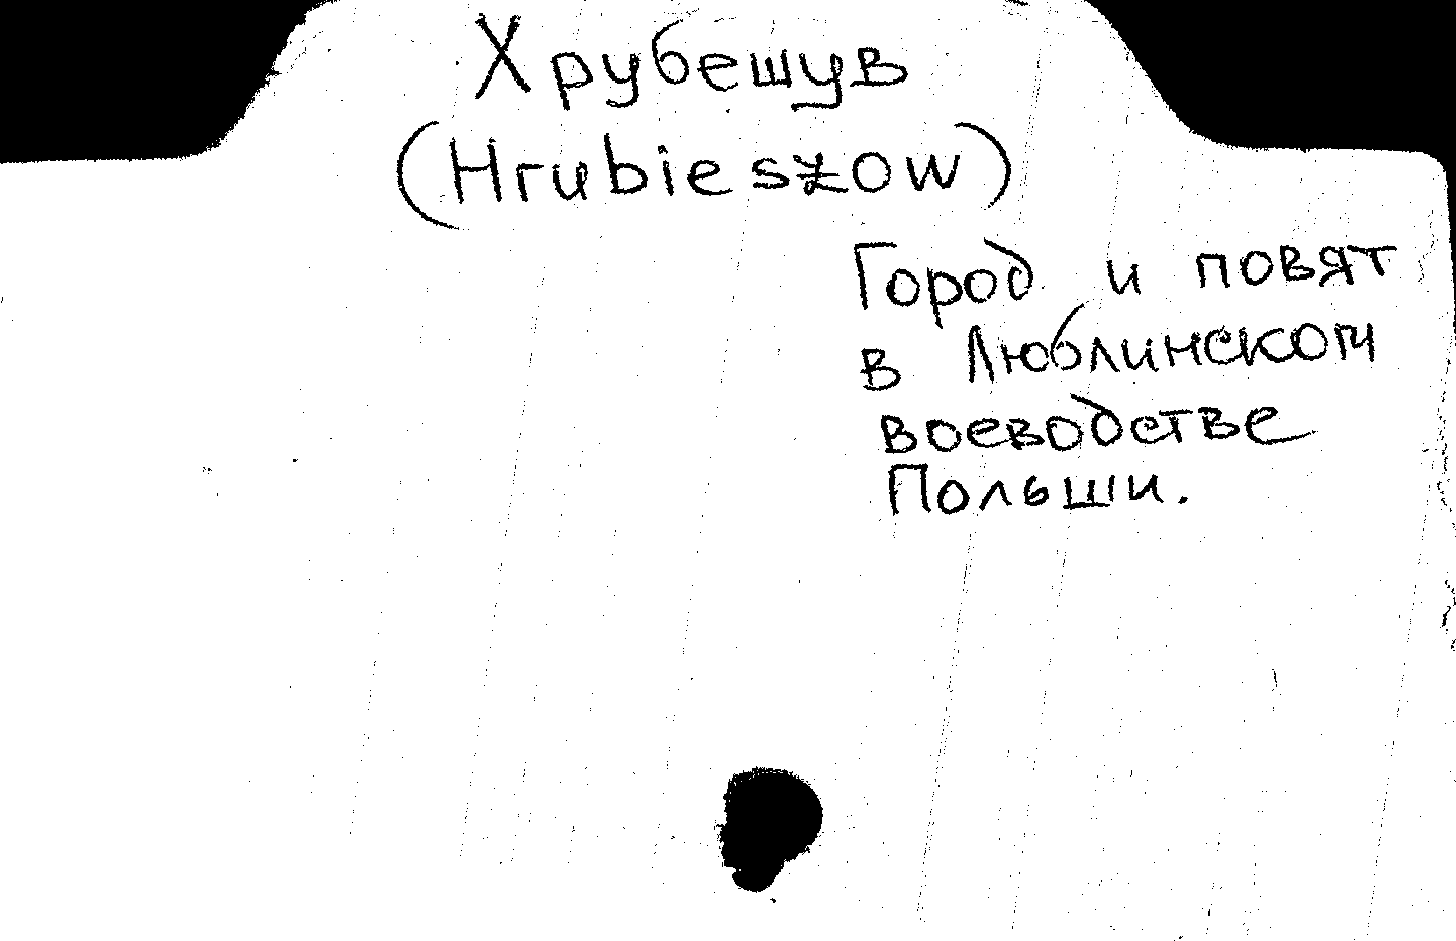 Хрубешув
(Hrubieszow)
Город и повят
в Люблинском
воеводстве
Польши.